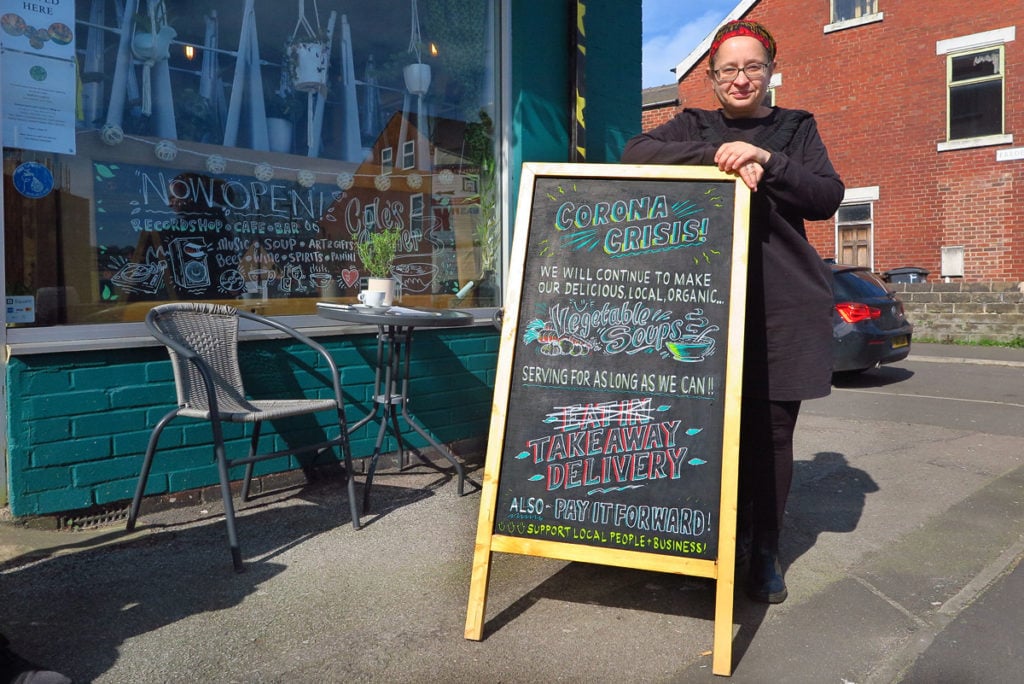 HERE
"NOW OPEN!"
RECORDSHOP • CAFE • BAR
MUSIC • SOUP • ART & GIFTS
BEER • WINE • SPIRITS • PANINI
CORONA
CRISIS!
WE WILL CONTINUE TO MAKE
OUR DELICIOUS, LOCAL, ORGANIC...
Vegetable Soups
SERVING FOR AS LONG AS WE CAN!!
EAT IN
TAKEAWAY
DELIVERY
ALSO - PAY IT FORWARD!
SUPPORT LOCAL PEOPLE + BUSINESS!